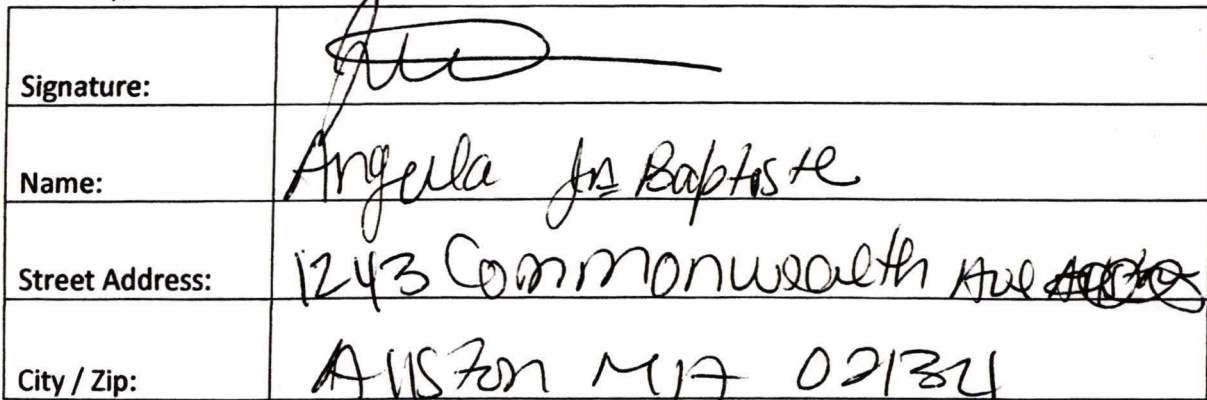 Signature:
Name: Angella Jn Baptiste
Street Address: 1243 Commonwealth Ave
City / Zip: Allston MA 02134